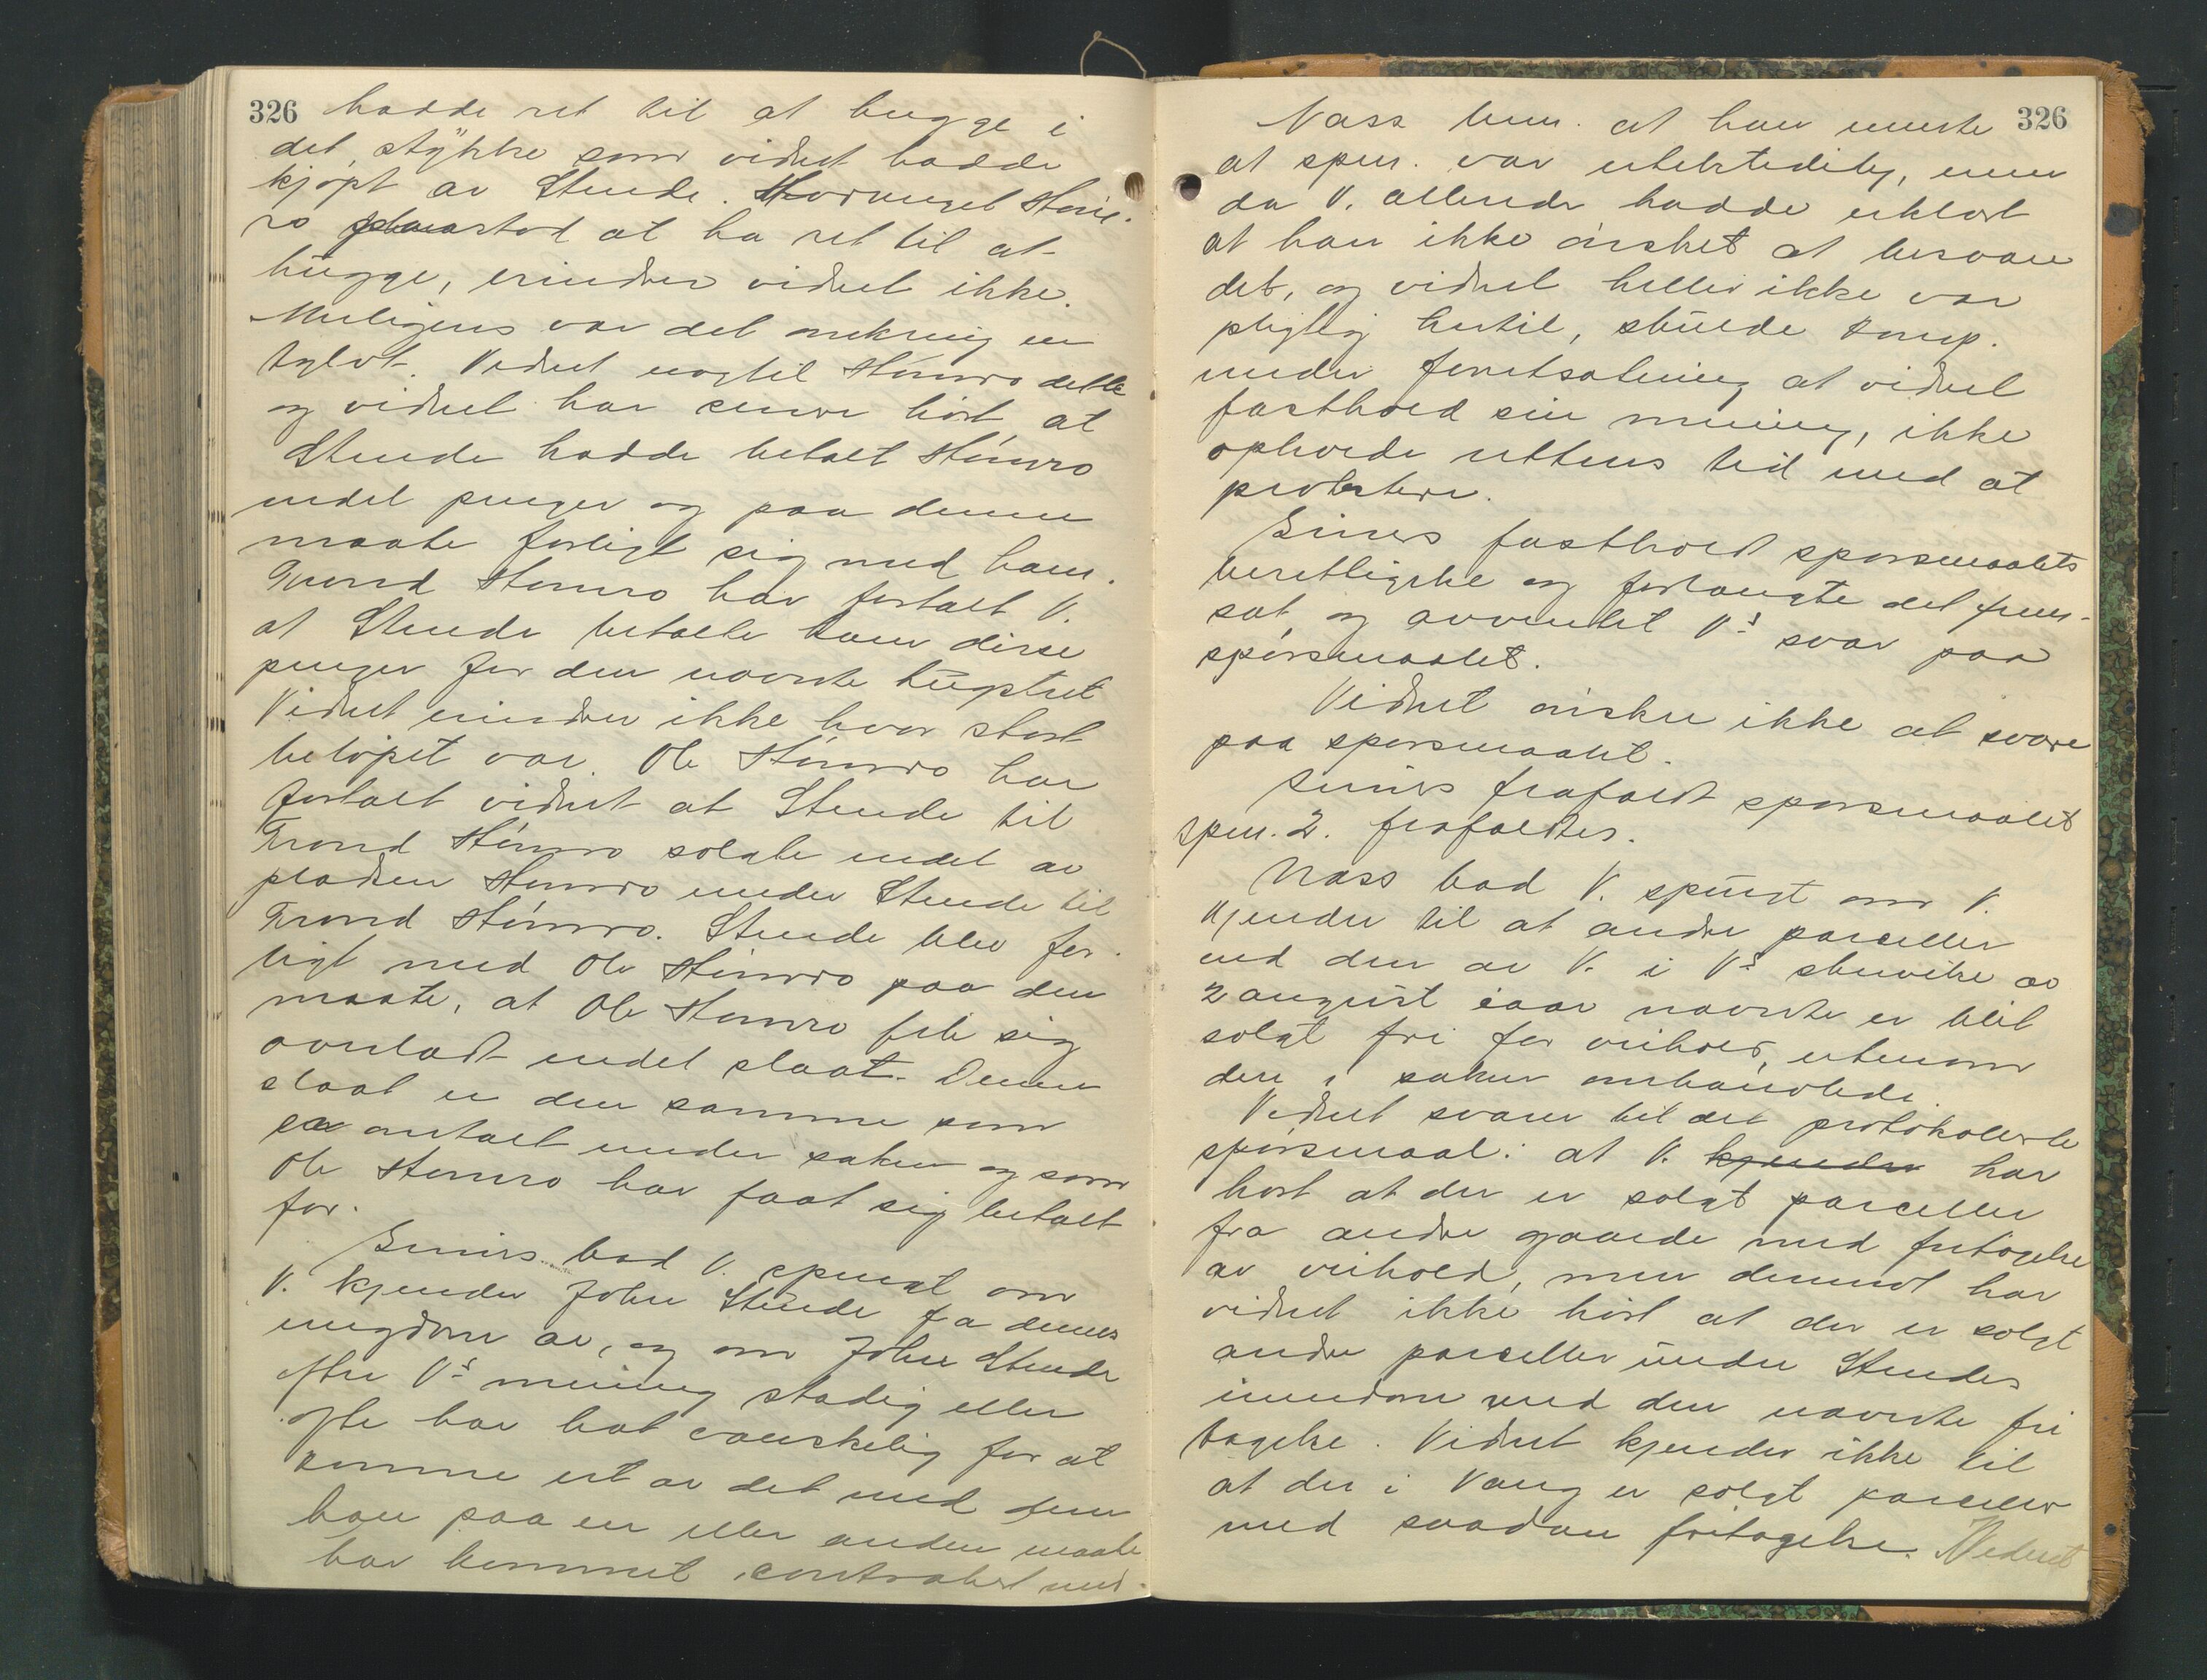 326 hadde ret til at hugge i
det stykke som vidnet hadde
kjøpt av Stende. Hvormeget Høn-
ro paastod at ha ret til at
hugge, erindrer vidnet ikke.
Muligens var det omkring en
tylvt. Vidnet negtet Hønsro dette
og vidnet har senere hørt at
Stende hadde betalt Hønsro
endel penger og paa denne
maate forligt sig med ham.
Trond Hønsro har fortalt V.
at Stende betalte ham disse
penger for den nævnte hugstret
Vidnet erindrer ikke hvor stort
beløpet var. Ole Hønsro har
fortalt vidnet at Stende til
Trond Hønsro solgte endel av
pladsen Hønsro under Stende til
Trond Hønsro. Stende blev for-
ligt med Ole Hønsro paa den
maate, at Ole Hønsro fik sig
overladt endel slaat. Denne
slaat er den samme som
er omtalt under saken og som
Ole Hønsro har faat sig betalt
for.
bad V. spurgt om
V. kjender John Stende fra dennes
ungdom av, og om John Stende
efter V's mening stadig eller
ofte har hat vanskelig for at
komme ut av det med dem
han paa en eller anden maate
har kommet i contrakt med.
Næss bem. at han mente 326
at spm. var utilstedelig, men
da V. allerede hadde erklært
at han ikke ønsket at besvare
det, og vidnet heller ikke var
pligtig hertil, skulde komp.
under forutsætning at vidnet
fastholdt sin mening, ikke
opholde rettens tid med at
protestere.
fastholdt spørsmaalets
berettigelse og forlangte det frem-
sat og avventet V's svar paa
spørsmaalet.
Vidnet ønsker ikke at svare
paa spørsmaalet.
frafaldt spørsmaalet
spm. 2. frafaldtes.
Næss bad V. spurgt om V.
kjender til at andre parceller
end den av V. i V's skrivelse av
2 august iaar nævnte er blit
solgt fri for veihold, utenom
den i saken omhandlede.
Vidnet svarer til det protokollerte
spørsmaal: at V. kjender har
hørt at der er solgt parceller
fra andre gaarde med fritagelse
av veihold, men derimot har
vidnet ikke hørt at der er solgt
andre parceller under Stendes
eiendom med den nævnte fri
tagelse. Vidnet kjender ikke til
at der i Vang er solgt parceller
med saadan fritagelse. Vidnet